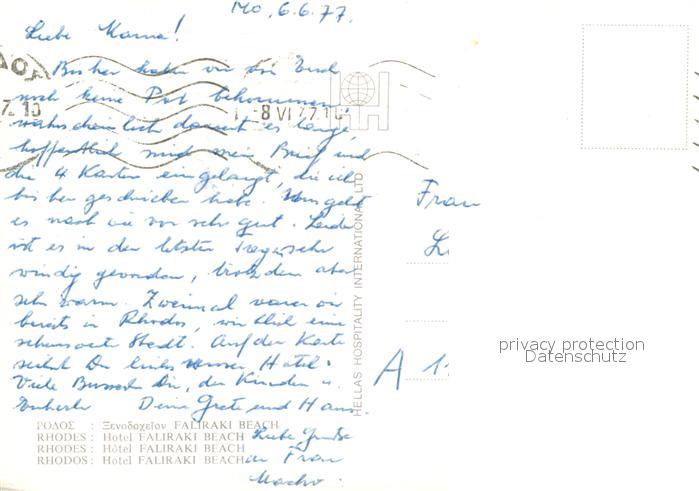 Mo, 6.6.77.
Liebe Mama!
Bisher haben wir von Euch
noch keine Post bekommen
wahrscheinlich dauert es lange
hoffentlich sind mein Brief und
die 4 Karten eingelangt, die ich
bisher geschrieben habe. Uns geht
es nach wie vor sehr gut. Leider
ist es in den letzten Tagen sehr
windig geworden, trotzdem aber
sehr warm. Zweimal waren wir
bereits in Rhodos, wirklich eine
sehenswerte Stadt. Auf der Karte
siehst Du links unser Hotel.
Viele Bussi Dir, den Kindern u.
Deine Grete und Hans
Liebe Grüße
an Frau
ΡΟΔΟΣ : Ξενοδοχεῖον FALIRAKI BEACH
RHODES : Hotel FALIRAKI BEACH
RHODES : Hôtel FALIRAKI BEACH
RHODOS : Hotel FALIRAKI BEACH
HELLAS HOSPITALITY INTERNATIONAL LTD
-8 VI 77
Frau
A 1
privacy protection
Datenschutz